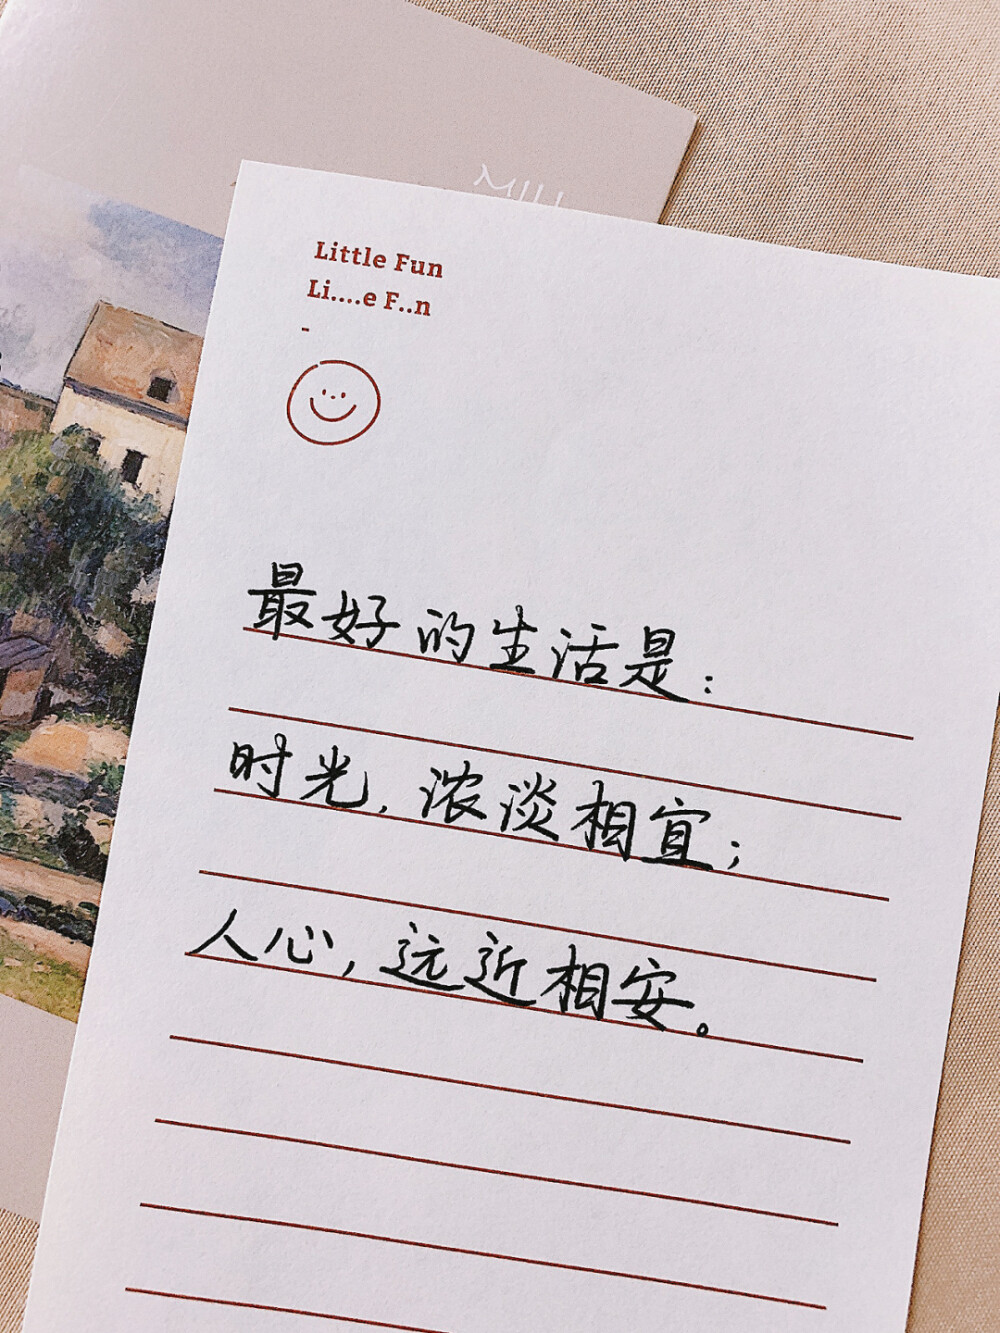 Little Fun
Li....e F..n
-
最好的生活是：
时光，浓淡相宜；
人心，远近相安。